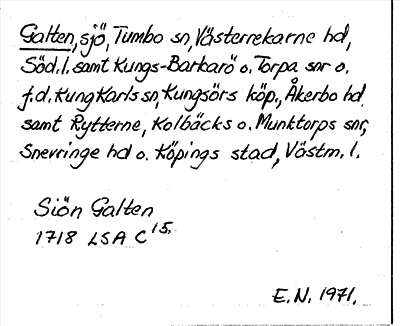 Galten, sjö, Tumbo sn, Västerrekarne hd,
Söd.l. samt Kungs-Barkarö o. Torpa snr o.
f.d. Kung Karls sn, Kungsörs köp., Åkerbo hd
samt Rytterne, Kolbäcks o. Munktorps snr,
Snevringe hd o. Köpings stad, Västm. l.
Siön Galten
1718 LSA C 15.
E.N. 1971.